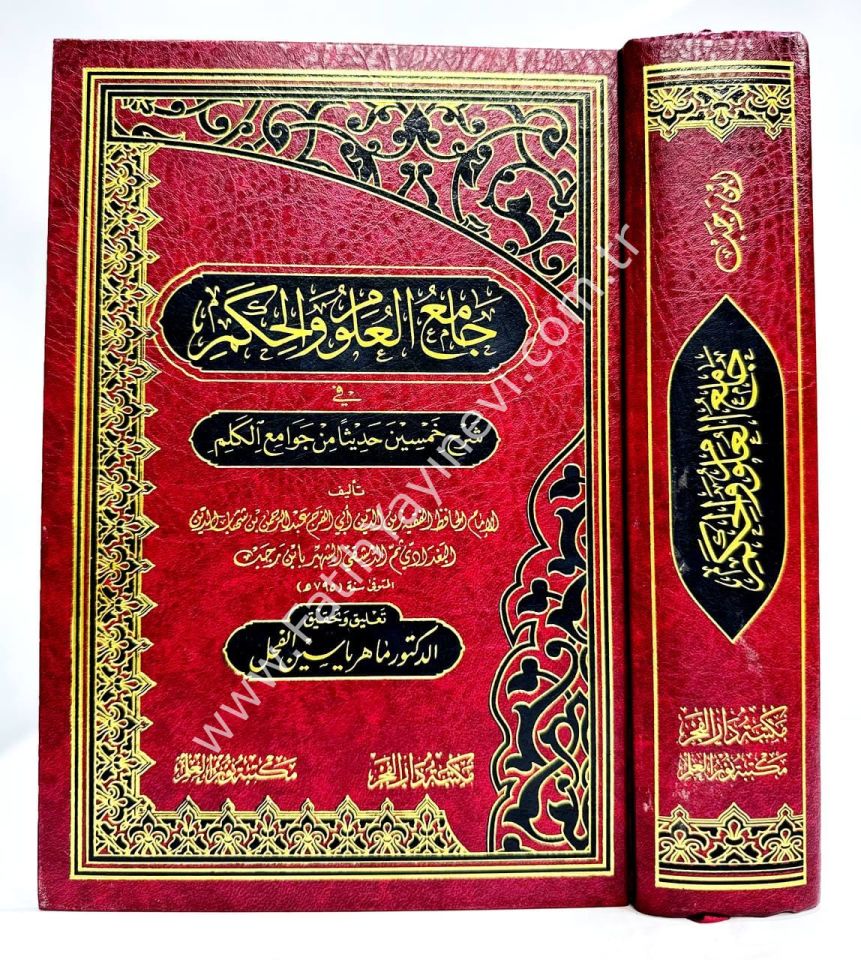 جَامِعُ العُلُومِ وَالحِكَمِ
في
شَرْحِ خَمْسِينَ حَدِيثًا مِنْ جَوَامِعِ الكَلِمِ
تأليف
الإمام الحافظ الفقيه زين الدين أبي الفرج عبد الرحمن بن شهاب الدين
البغدادي ثم الدمشقي الشهير بابن رجب
المتوفى سنة (٧٩٥ هـ)
تعليق وتحقيق
الدكتور ماهر ياسين الفحل
مكتبة دار الفجر
مكتبة نور العلم
ابن رجب
جامع العلوم والحكم
مكتبة دار الفجر
مكتبة نور العلم
www.fatihyayinevi.com.tr